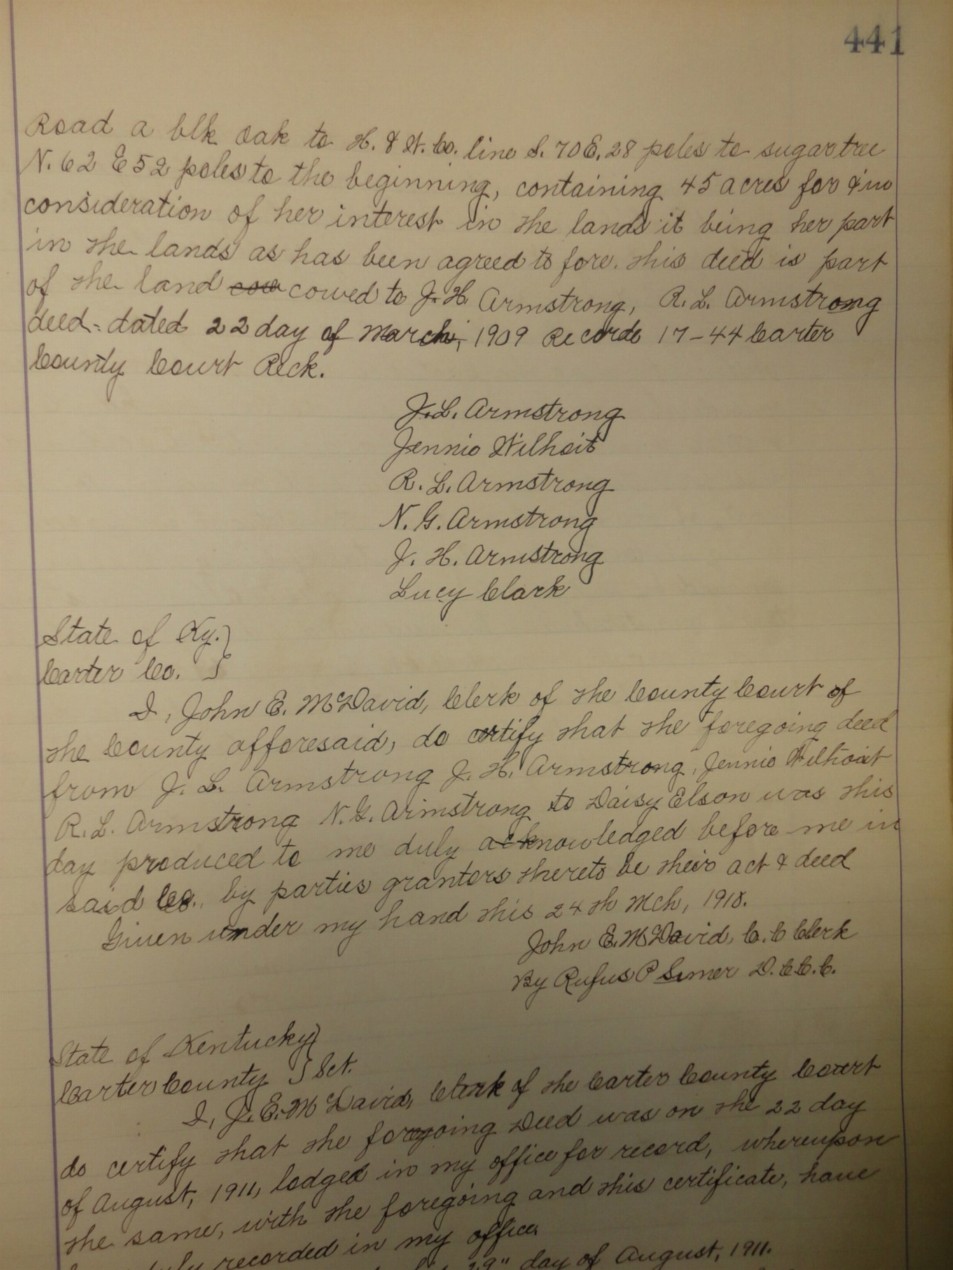 441
Road a blk oak to H. & W. Co. line S. 70 E. 28 poles to sugartree
N. 62 E 52 poles to the beginning, containing 45 acres for & in
consideration of her interest in the lands it being her part
in the lands as has been agreed to fore. this deed is part
of the land cowed to J. H. Armstrong, R. L. Armstrong
deed- dated 22 day of March, 1909 Records 17-44 Carter
County Court Reck.
J. L. Armstrong
Jennio Wilhoit
R. L. Armstrong
N. G. Armstrong
J. H. Armstrong
Lucy Clark
State of Ky. }
Carter Co. }
I, John E. McDavid, Clerk of the County Court of
the County afforesaid, do certify that the foregoing deed
from J. L. Armstrong J. H. Armstrong, Jennio Wilhoit
R. L. Armstrong N. G. Armstrong to Daisy Elson was this
day produced to me duly acknowledged before me in
said Co., by parties granters thereto be their act & deed
Given under my hand this 24th Mch, 1910.
John E. McDavid, C. C Clerk
By Rufus P D. C. C. C.
State of Kentucky }
Carter County } Sct.
I, J. E. McDavid, Clerk of the Carter County Court
do certify that the foregoing Deed was on the 22 day
of August, 1911, lodged in my office for record, whereupon
the same, with the foregoing and this certificate, have
duly recorded in my office
29" day of August, 1911.